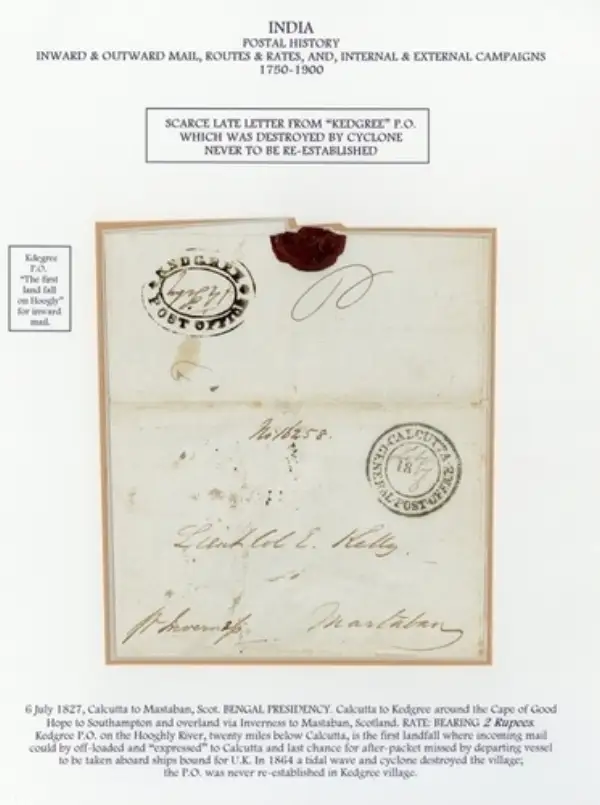 INDIA
POSTAL HISTORY
INWARD & OUTWARD MAIL, ROUTES & RATES, AND, INTERNAL & EXTERNAL CAMPAIGNS
1750-1900
SCARCE LATE LETTER FROM "KEDGREE" P.O.
WHICH WAS DESTROYED BY CYCLONE
NEVER TO BE RE-ESTABLISHED
Kdegree
P.O.
"The first
land fall
on Hoogly"
for inward
mail.
KEDGREE
POST OFFICE
No 16258.
CALCUTTA
GENERAL POST OFFICE
18
Lieut Col E. Kelly
pr Inverness
Martaban
6 July 1827, Calcutta to Mastaban, Scot. BENGAL PRESIDENCY. Calcutta to Kedgree around the Cape of Good
Hope to Southampton and overland via Inverness to Mastaban, Scotland. RATE: BEARING 2 Rupees.
Kedgree P.O. on the Hooghly River, twenty miles below Calcutta, is the first landfall where incoming mail
could by off-loaded and "expressed" to Calcutta and last chance for after-packet missed by departing vessel
to be taken aboard ships bound for U.K. In 1864 a tidal wave and cyclone destroyed the village;
the P.O. was never re-established in Kedgree village.